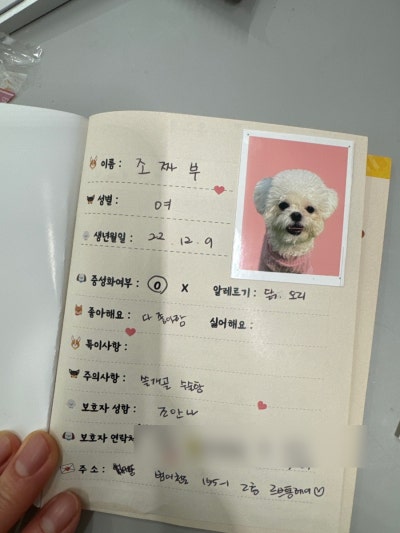 이름 : 조 짜 부
성별 : 여
생년월일 : 22. 12. 9
중성화여부 : O X 알레르기 : 닭, 오리
좋아해요 : 다 좋아함 싫어해요 :
특이사항 :
주의사항 : 쓸개골 수술함
보호자 성함 : 조안나
보호자 연락처
주소 : 155-1 2층